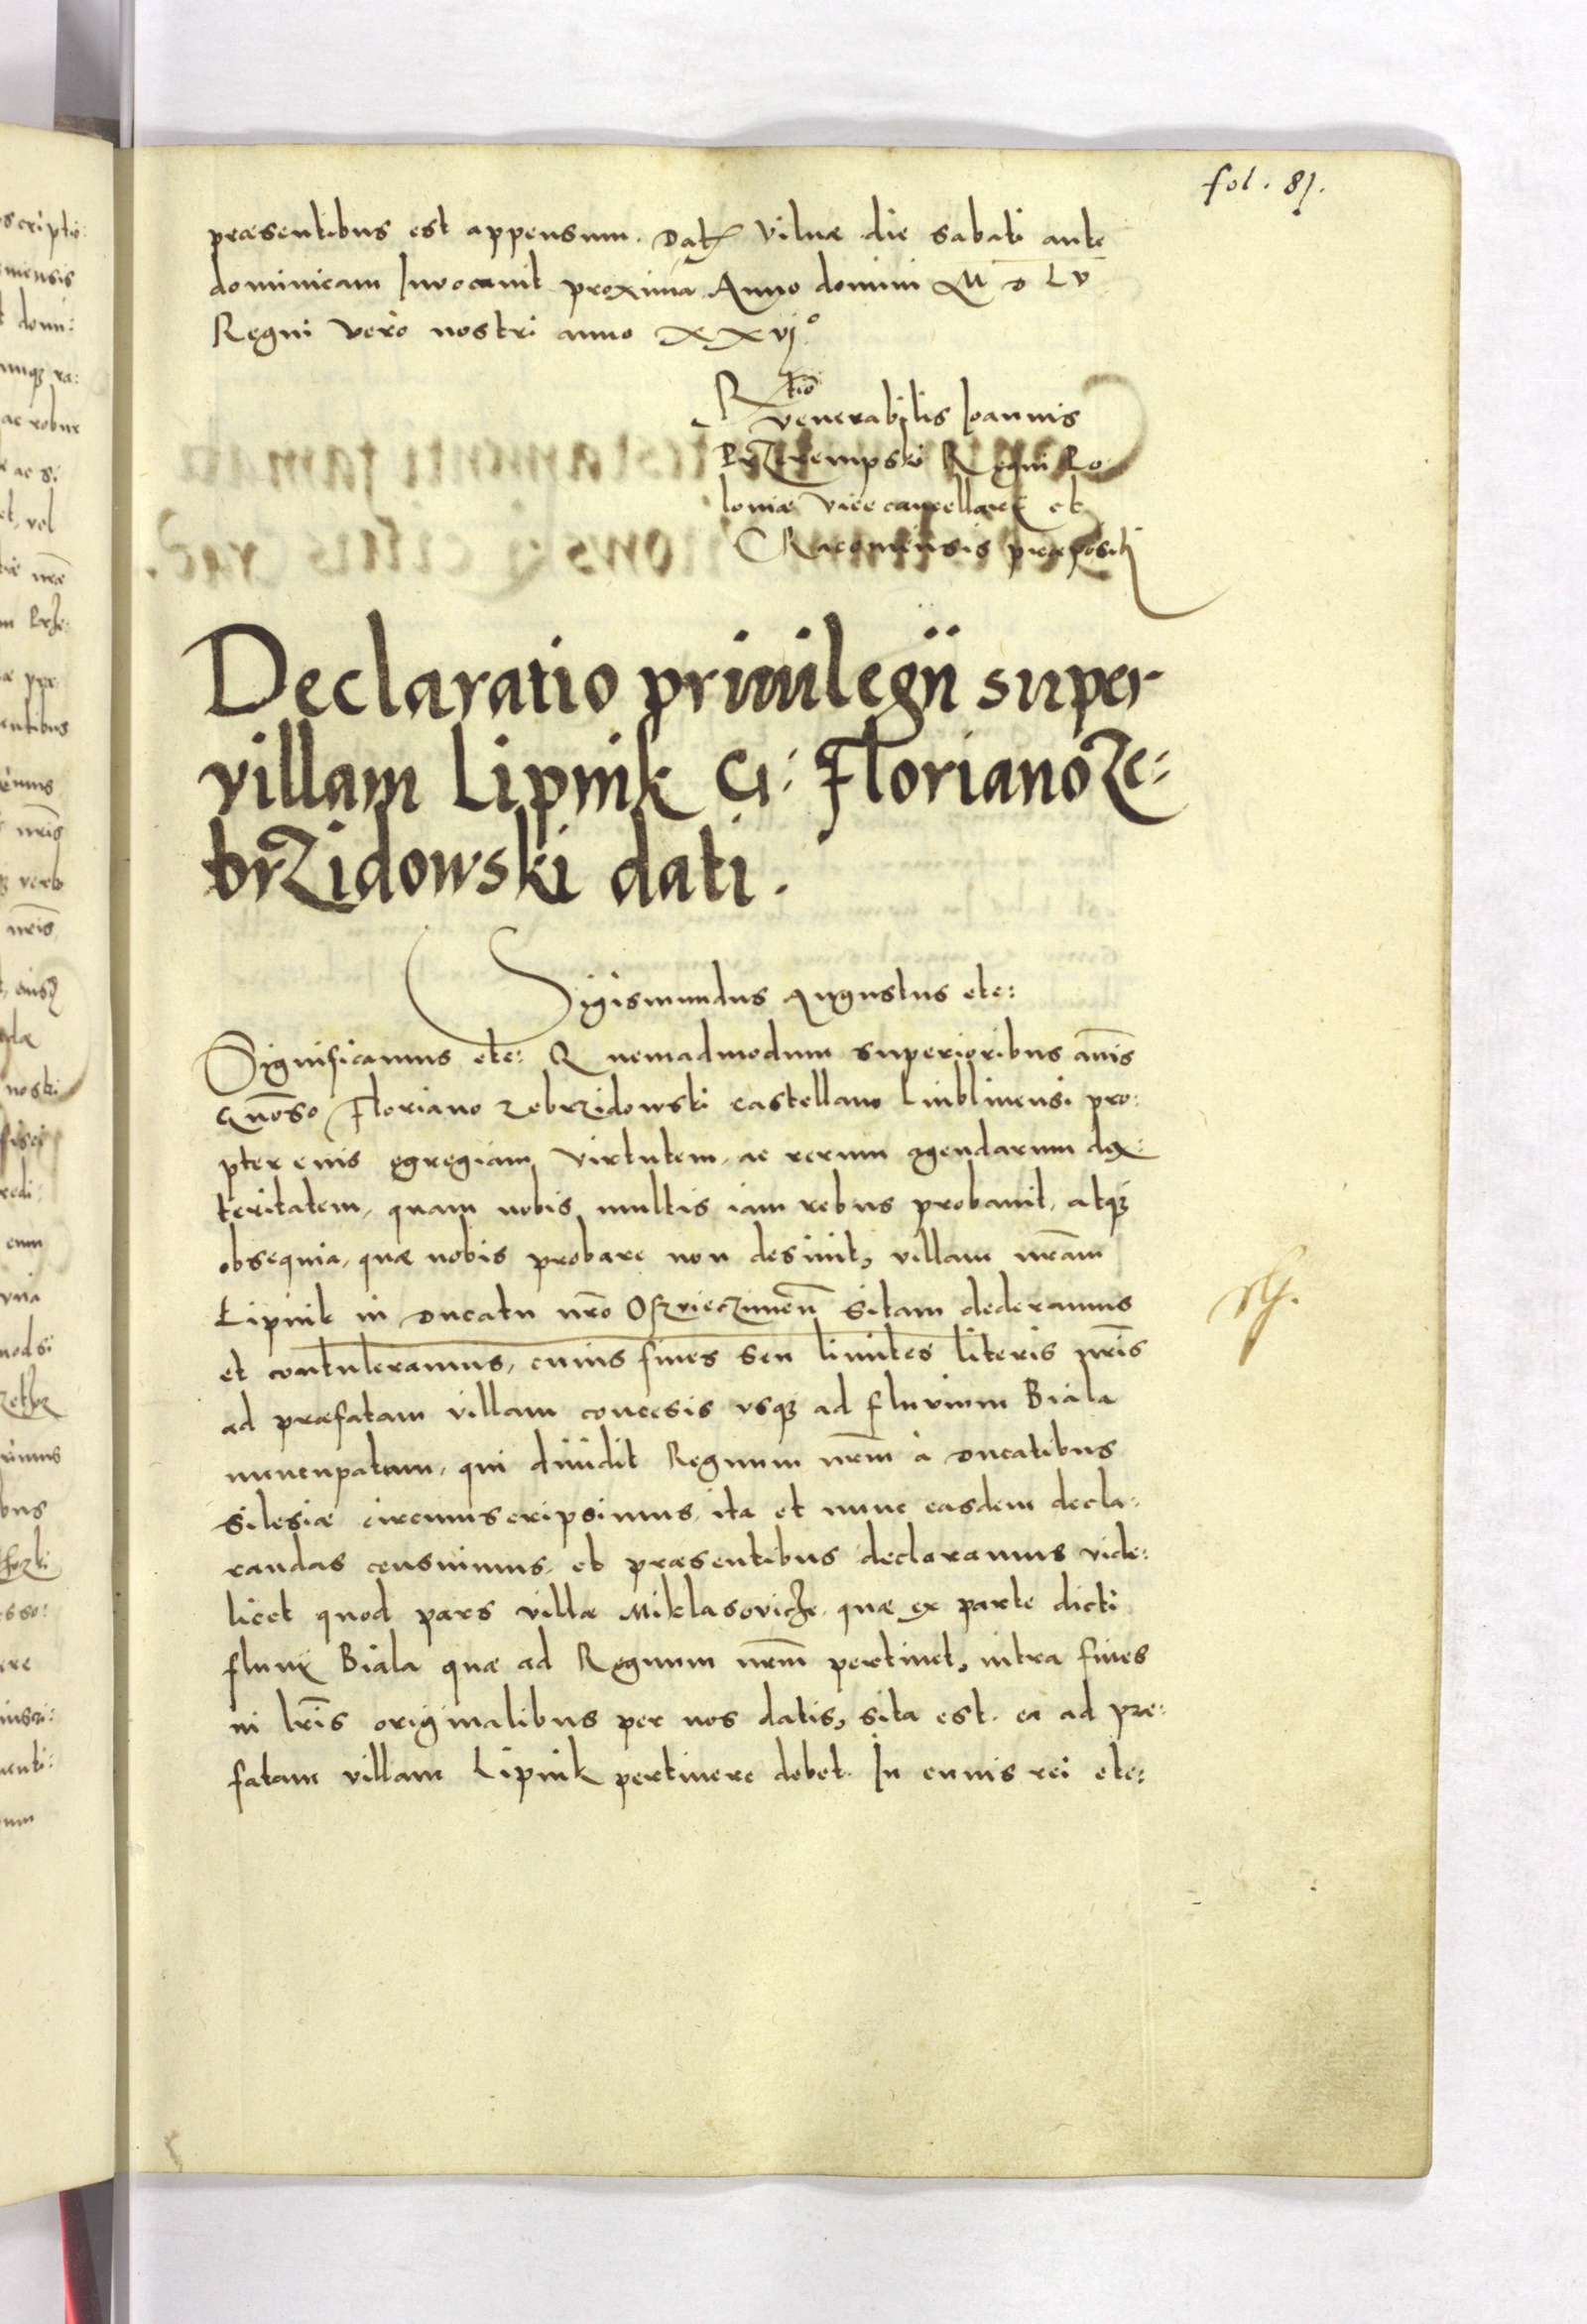 fol. 81.
præsentibus est appensum. Dat Vilnæ die sabati ante
dominicam Invocavit proximā Anno domini M D L V
Regni vero nostri anno xxvj°
Rtio
venerabilis Ioannis
Przerempski Regni Po
loniæ vicecancellarij et
Cracoviensis præpositi
Declaratio priuilegii super
villam Lipnik G: Floriano Ze:
brzidowski dati.
Sigismundus Augustus etc:
Significamus etc: Quemadmodum superioribus annis
Gnoso Floriano Zebrzidowski castellano Lublinensi pro:
pter eius egregiam virtutem, ac rerum agendarum dex:
teritatem, quam nobis multis iam rebus probauit, atq3
obsequia, quæ nobis probare non desinit, villam nram
Lipnik in Ducatu nro Oszvieczimeñ sitam dederamus
et contuleramus, cuius fines seu limites literis nris
ad præfatam villam concesis usq3 ad fluvium Biala
nuncupatum, qui diuidit Regnum nrm à Ducatibus
Silesiæ circumscripsimus, ita et nunc easdem decla:
randas censuimus, et præsentibus declaramus vide:
licet quod pars villæ Miklasovicze, quæ ex parte dicti
fluuij Biala quæ ad Regnum nrm pertinet, intra fines
in lris originalibus per nos datis, sita est. ea ad præ:
fatam villam Lipnik pertinere debet. In cuius rei etc: